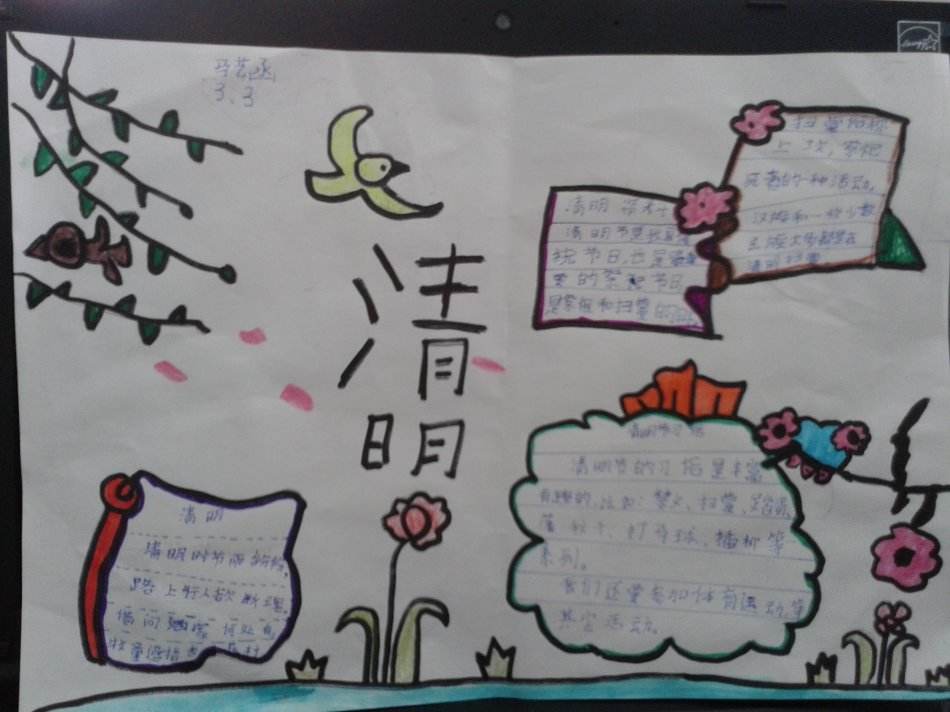 3.3
清
明
清明
清明时节雨纷纷,
路上行人欲断魂。
借问酒家何处有
牧童遥指杏花村
清明
清明节是我国
统节日,也是
要的祭祀节日,
是祭祖和扫墓的
扫墓
上坟,祭祀
死者的一种活动。
汉族和一些少数
民族大多都是在
清明扫墓
清明节习俗
清明节的习俗是丰富
有趣的,比如:禁火、扫墓、踏青、
荡秋千、打马球、插柳等
系列。
我们还要参加体育运动等
其它活动。